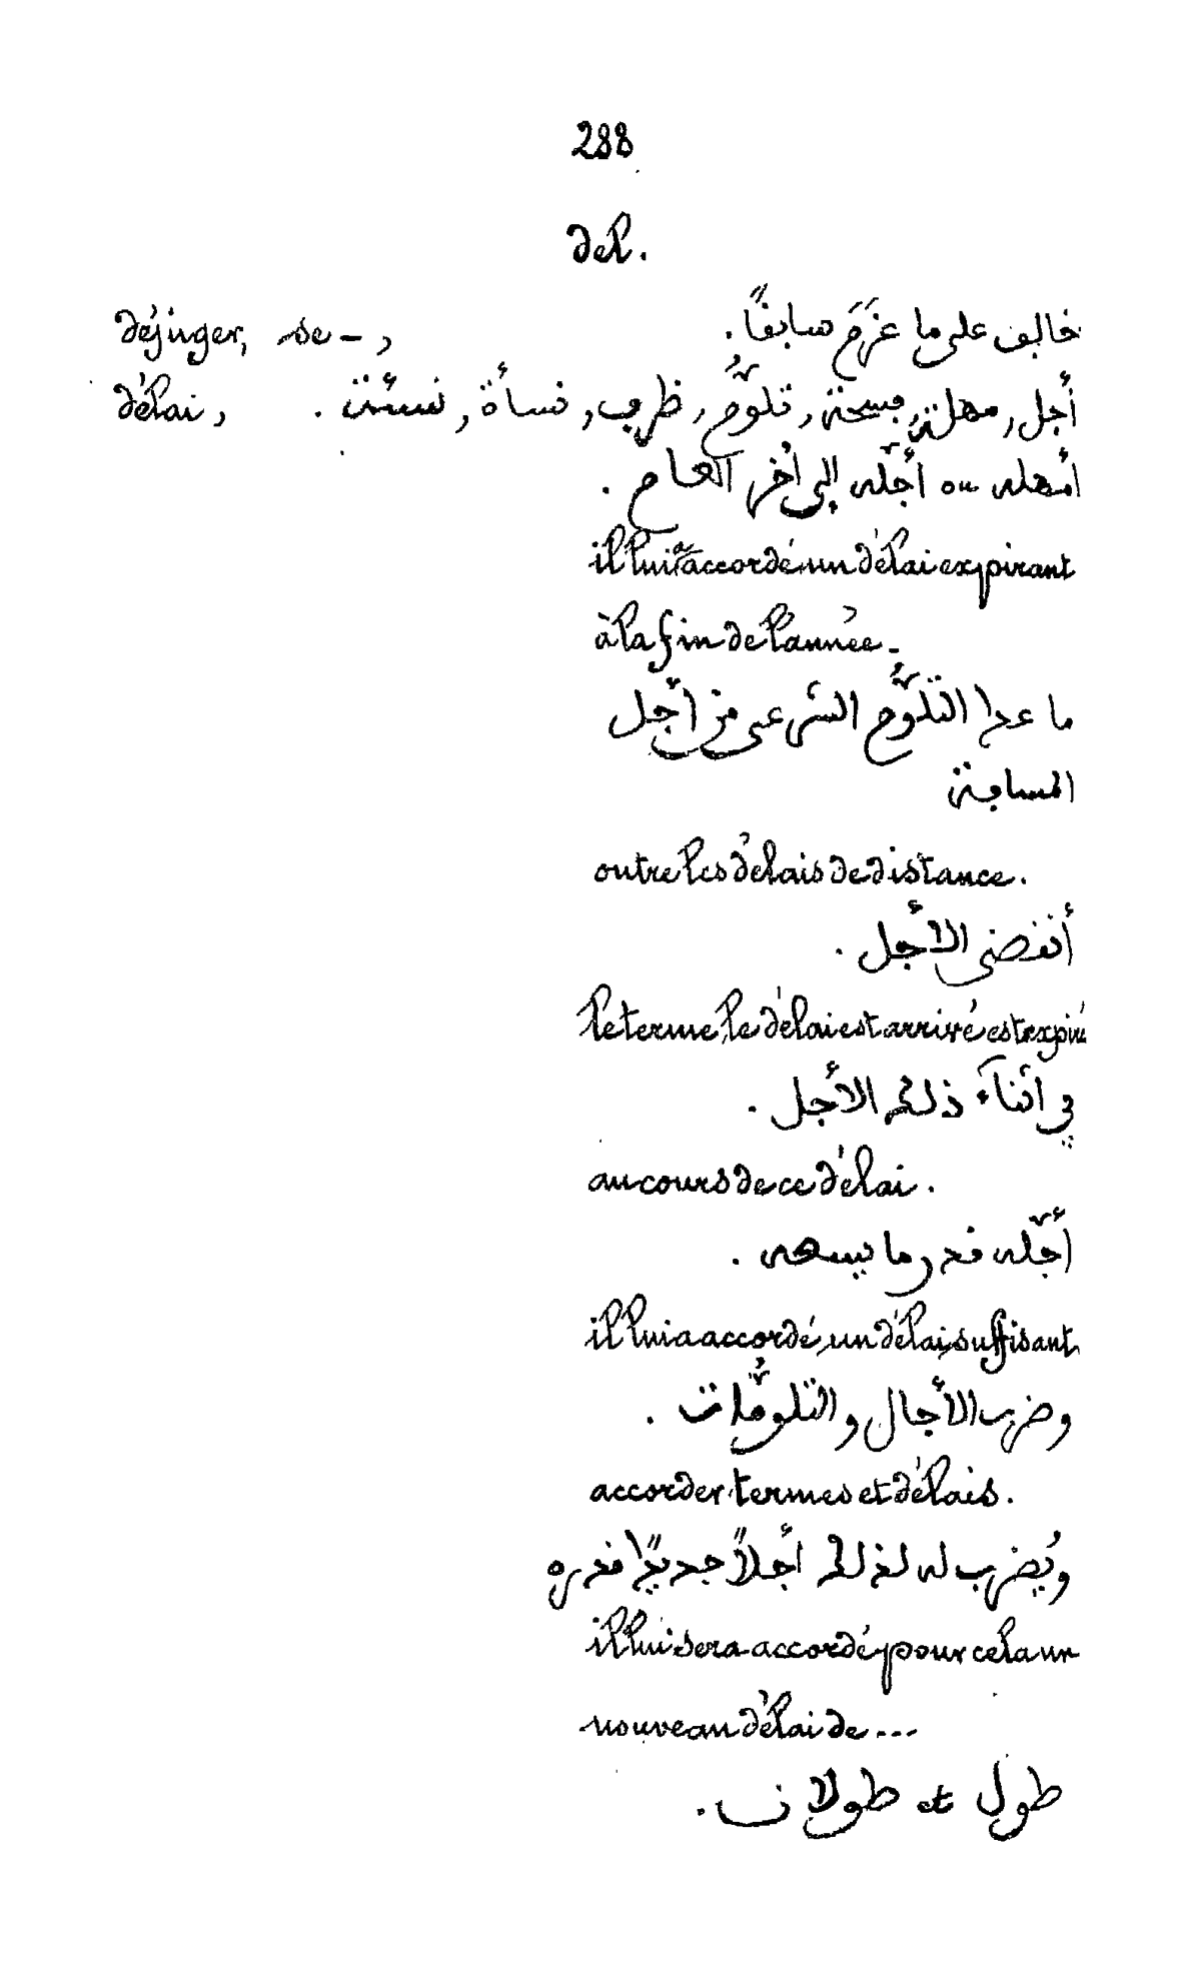 288
del.
déjuger, se –, خالف على ما عَزَمَ سابقًا.
délai, أجل, مهلة, فسحة, تلوُّم, ظرف, نسأة, نسئة.
أمهله ou أجّله إلى أخر العام.
il lui a accordé un délai expirant
à la fin de l'année.
ما عدا التلوُّم الشرعي من أجل
المسافة
outre les délais de distance.
أنقضى الأجل.
le terme, le délai est arrivé est expiré
في اثنآء ذلك الأجل.
au cours de ce délai.
أجّله قدر ما يسعه.
il lui a accordé un délai suffisant
وضرب الأجال والتلوُّمات.
accorder termes et délais.
ويُضرب له لذلك أجلاً جديدًا قدره
il lui sera accordé pour cela un
nouveau délai de ...
طول et طولان.